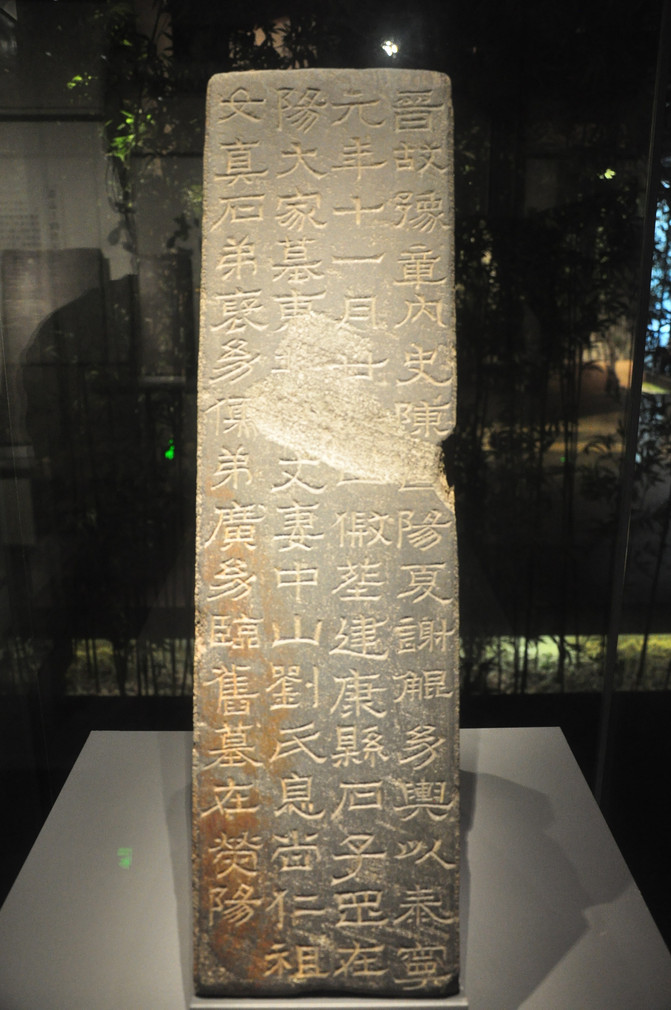 晉故豫章內史陳國陽夏謝鯤幼輿以泰寧
元年十一月廿假葬建康縣石子罡在
陽大家墓東北丈妻中山劉氏息尚仁祖
女真石弟裒幼儒弟廣幼臨舊墓在熒陽